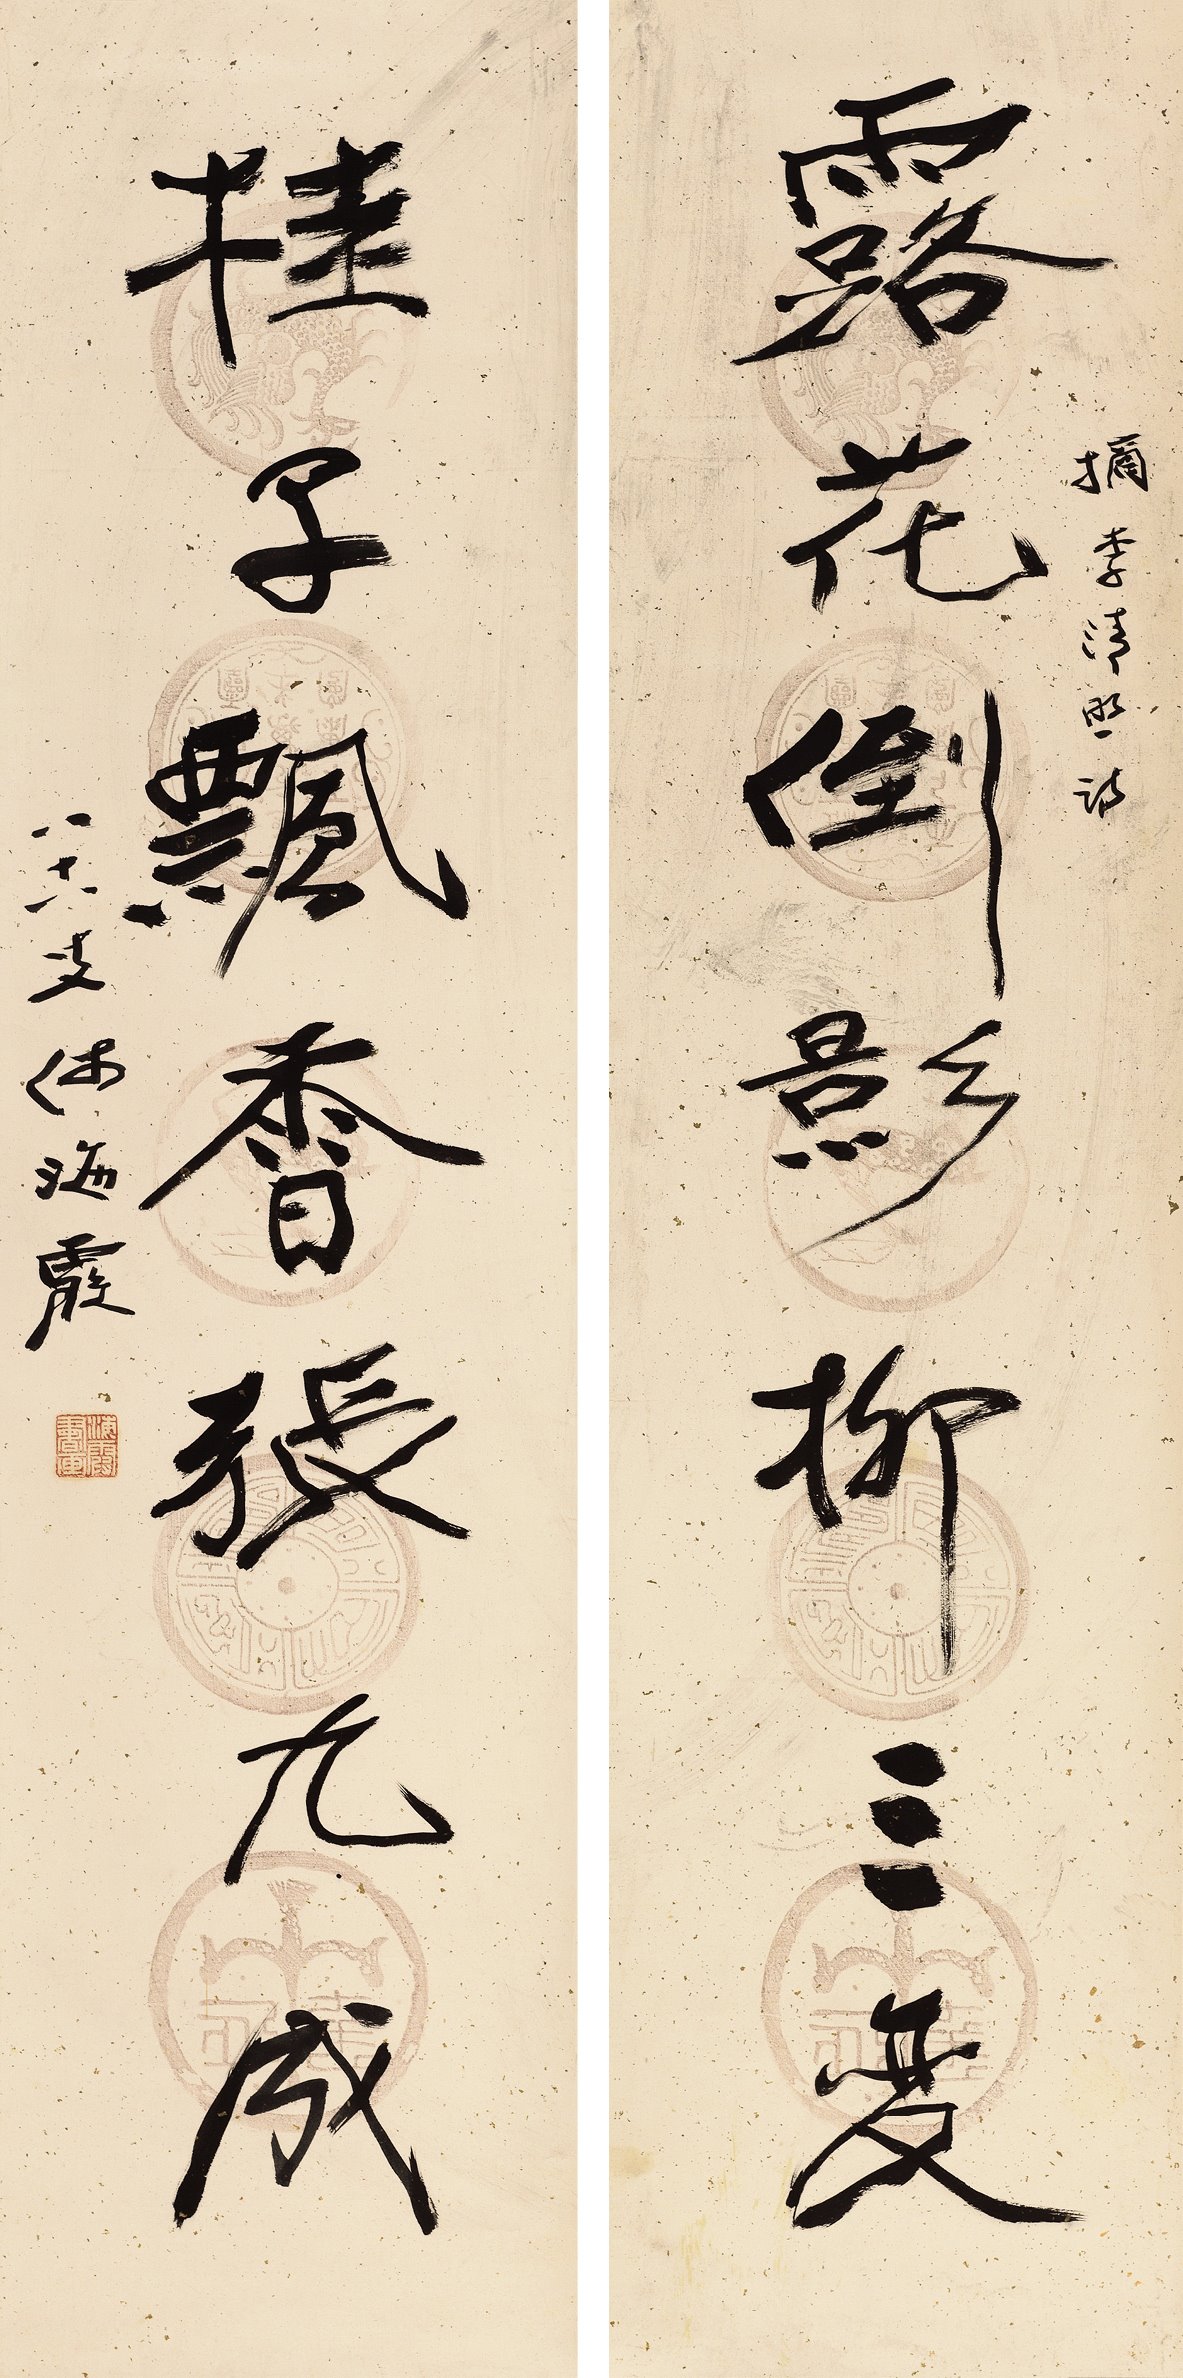 露花倒影柳三變
摘李清照詩
桂子飄香張九成
八十六叟何海霞
海霞書画